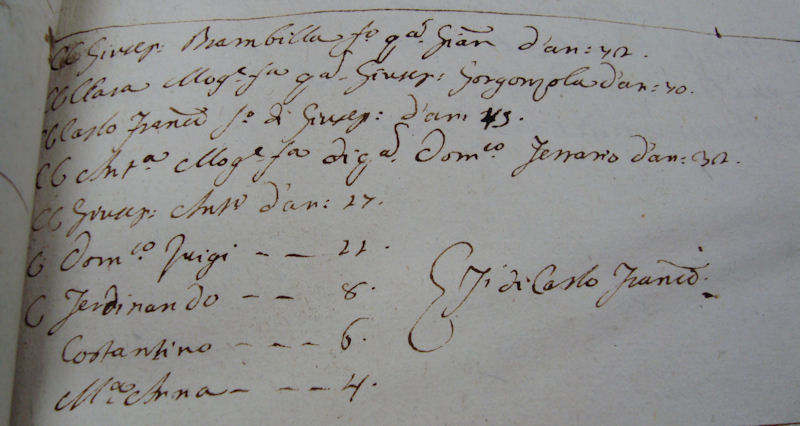 CC Giusep: Brambilla fo qm Gian d'an: 72.
CC Clara Moge fa qm Giusep: Gorgonzola d'an: 70.
CC Carlo Franco fo di Giusep: d'an: 43.
CC Anta Moge fa di qm Domco Ferrario d'an: 32.
CC Giusep: Anto d'an: 17.
C Domco Luigi – – 11.
C Ferdinando – – 8.
Costantino – – – 6.
Ma Anna – – – 4.
Fi di Carlo Franco.